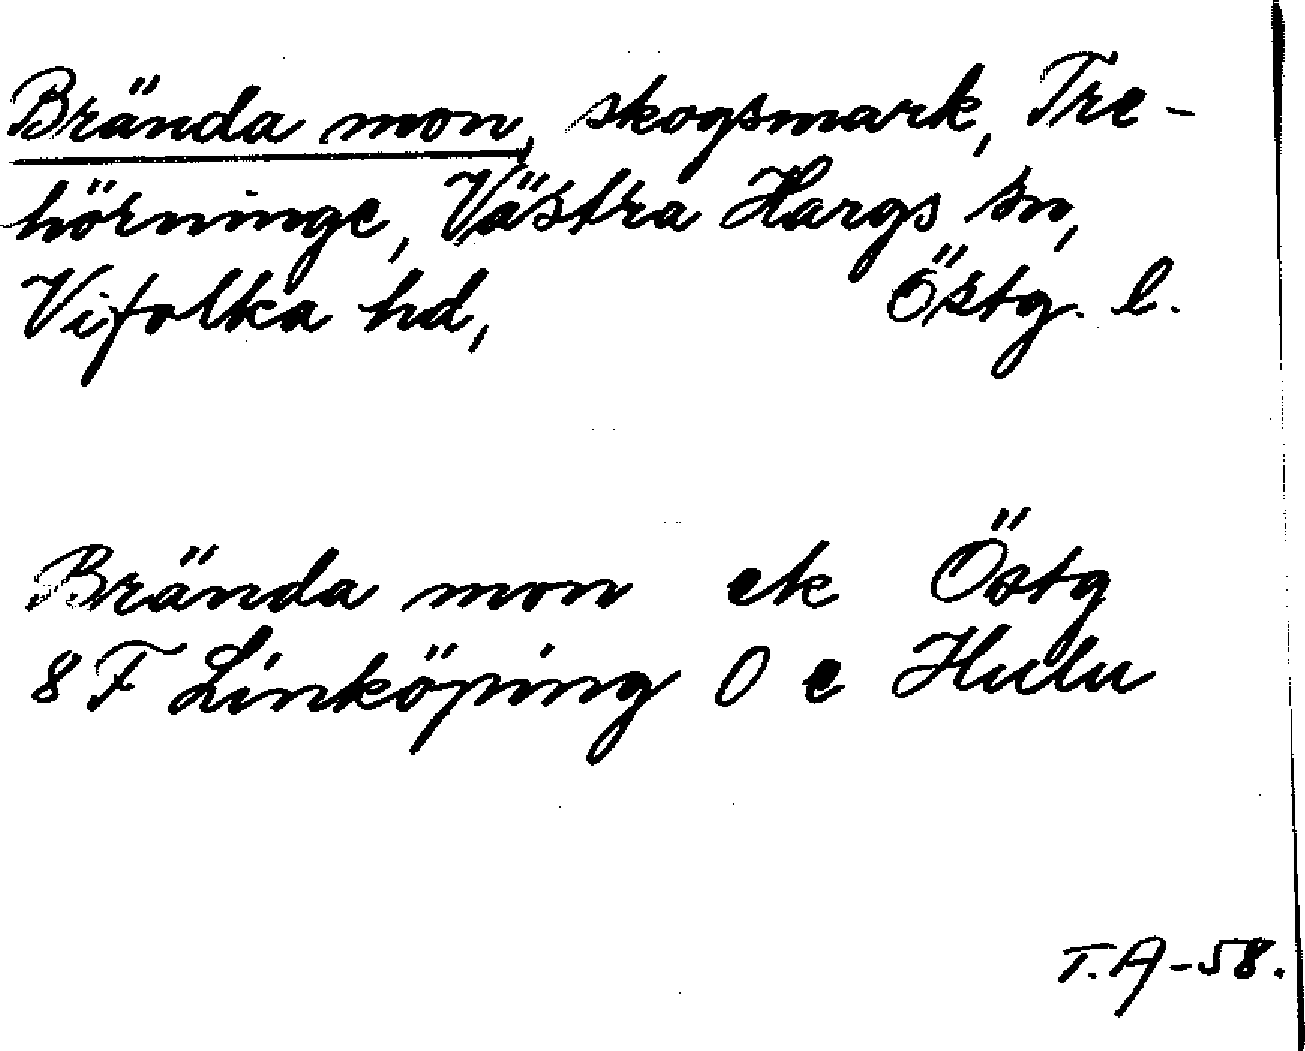 Brända mon, skogsmark, Tre-
hörninge, Västra Hargs sn,
Vifolka hd, Östg. l.
Brända mon ek Östg
8 F Linköping O e Hulu
T.A-58.